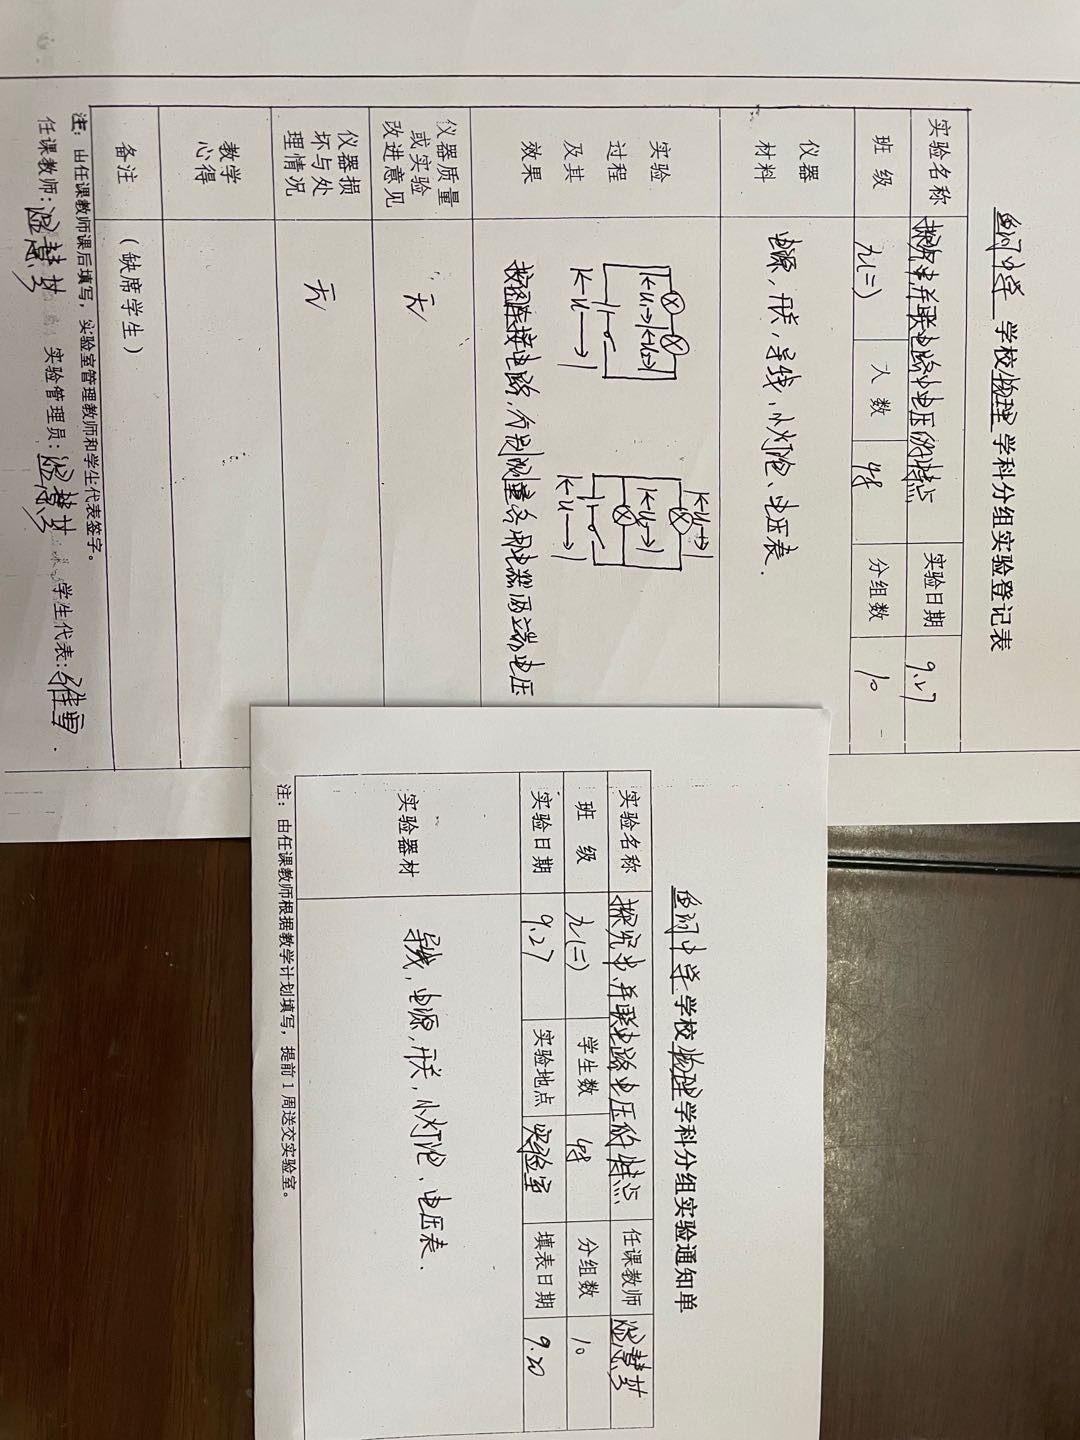 鱼河中学 学校 物理 学科分组实验登记表
实验名称 探究串并联电路中电压的特点 实验日期 9.27
班 级 九(二) 人 数 48 分组数 10
仪器
材料
电源,开关,导线、小灯泡、电压表.
实验
过程
及其
效果
|←U₁→|←U₂→|
|←U→|
|←U₁→|
|←U₂→|
|←U→|
按图连接电路,分别测量各用电器两端电压
仪器质量
或实验
改进意见
无
仪器损
坏与处
理情况
无
教学
心得
备注 (缺席学生)
注:由任课教师课后填写,实验室管理教师和学生代表签字。
任课教师: 实验管理员: 学生代表:
鱼河中学 学校 物理 学科分组实验通知单
实验名称 探究串、并联电路电压的特点 任课教师
班 级 九(二) 学生数 48 分组数 10
实验日期 9.27 实验地点 实验室 填表日期 9.20
实验器材 导线,电源,开关,小灯泡、电压表.
注:由任课教师根据教学计划填写,提前1周送交实验室。